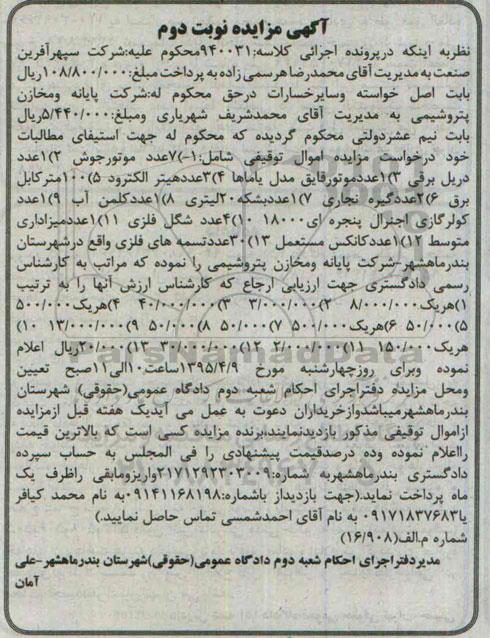 آگهی مزایده نوبت دوم
نظربه اینکه درپرونده اجرائی کلاسه:۹۴۰۰۳۱محکوم علیه:شرکت سپهرآفرین
صنعت به مدیریت آقای محمدرضا هرسمی زاده به پرداخت مبلغ:۱۰۸/۸۰۰/۰۰۰ریال
بابت اصل خواسته وسایرخسارات درحق محکوم له:شرکت پایانه ومخازن
پتروشیمی به مدیریت آقای محمدشریف شهریاری ومبلغ:۵/۴۴۰/۰۰۰ریال
بابت نیم عشردولتی محکوم گردیده که محکوم له جهت استیفای مطالبات
خود درخواست مزایده اموال توقیفی شامل:۱-)۷عدد موتورجوش ۲)۱عدد
دریل برقی ۳)۱عددموتورقایق مدل یاماها ۴)۳عددهیتر الکترود ۵)۱۰۰مترکابل
برق ۶)۲عددگیره نجاری ۷)۱عددبشکه۲۰لیتری ۸)۱عددکلمن آب ۹)۱عدد
کولرگازی اجنرال پنجره ای۱۸۰۰۰ ۱۰)۴عدد شگل فلزی ۱۱)۱عددمیزاداری
متوسط ۱۲)۱عددکانکس مستعمل ۱۳)۳۰عددتسمه های فلزی واقع درشهرستان
بندرماهشهر-شرکت پایانه ومخازن پتروشیمی را نموده که مراتب به کارشناس
رسمی دادگستری جهت ارزیابی ارجاع که کارشناس ارزش آنها را به ترتیب
۱)هریک۸/۰۰۰/۰۰۰ ۲)۳/۰۰۰/۰۰۰ ۳)۴۰/۰۰۰/۰۰۰ ۴)هریک۵۰۰/۰۰۰
۵)۵۰/۰۰۰ ۶)هریک۵۰۰/۰۰۰ ۷)۵۰/۰۰۰ ۸)۵۰/۰۰۰ ۹)۱۳/۰۰۰/۰۰۰ ۱۰)
هریک۱۵۰/۰۰۰ ۱۱)۲/۰۰۰/۰۰۰ ۱۲)۳۰/۰۰۰/۰۰۰ ۱۳)۲۰/۰۰۰ریال اعلام
نموده وبرای روزچهارشنبه مورخ ۱۳۹۵/۴/۹ساعت۱۰الی۱۱صبح تعیین
ومحل مزایده دفتراجرای احکام شعبه دوم دادگاه عمومی(حقوقی) شهرستان
بندرماهشهرمیباشدوازخریداران دعوت به عمل می آیدیک هفته قبل ازمزایده
ازاموال توقیفی مذکور بازدیدنمایند،برنده مزایده کسی است که بالاترین قیمت
رااعلام نموده وده درصدقیمت پیشنهادی را فی المجلس به حساب سپرده
دادگستری بندرماهشهربه شماره:۲۱۷۱۲۹۲۳۰۳۰۰۹واریزومابقی راظرف یک
ماه پرداخت نماید.(جهت بازدیداز باشماره:۰۹۱۴۱۱۶۸۱۹۸به نام محمد کیافر
یا۰۹۱۷۱۸۳۷۶۸۳ به نام آقای احمدشمسی تماس حاصل نمایید.)
شماره م.الف(۱۶/۹۰۸)
مدیردفتراجرای احکام شعبه دوم دادگاه عمومی(حقوقی)شهرستان بندرماهشهر-علی
آمان
ParsNamadData